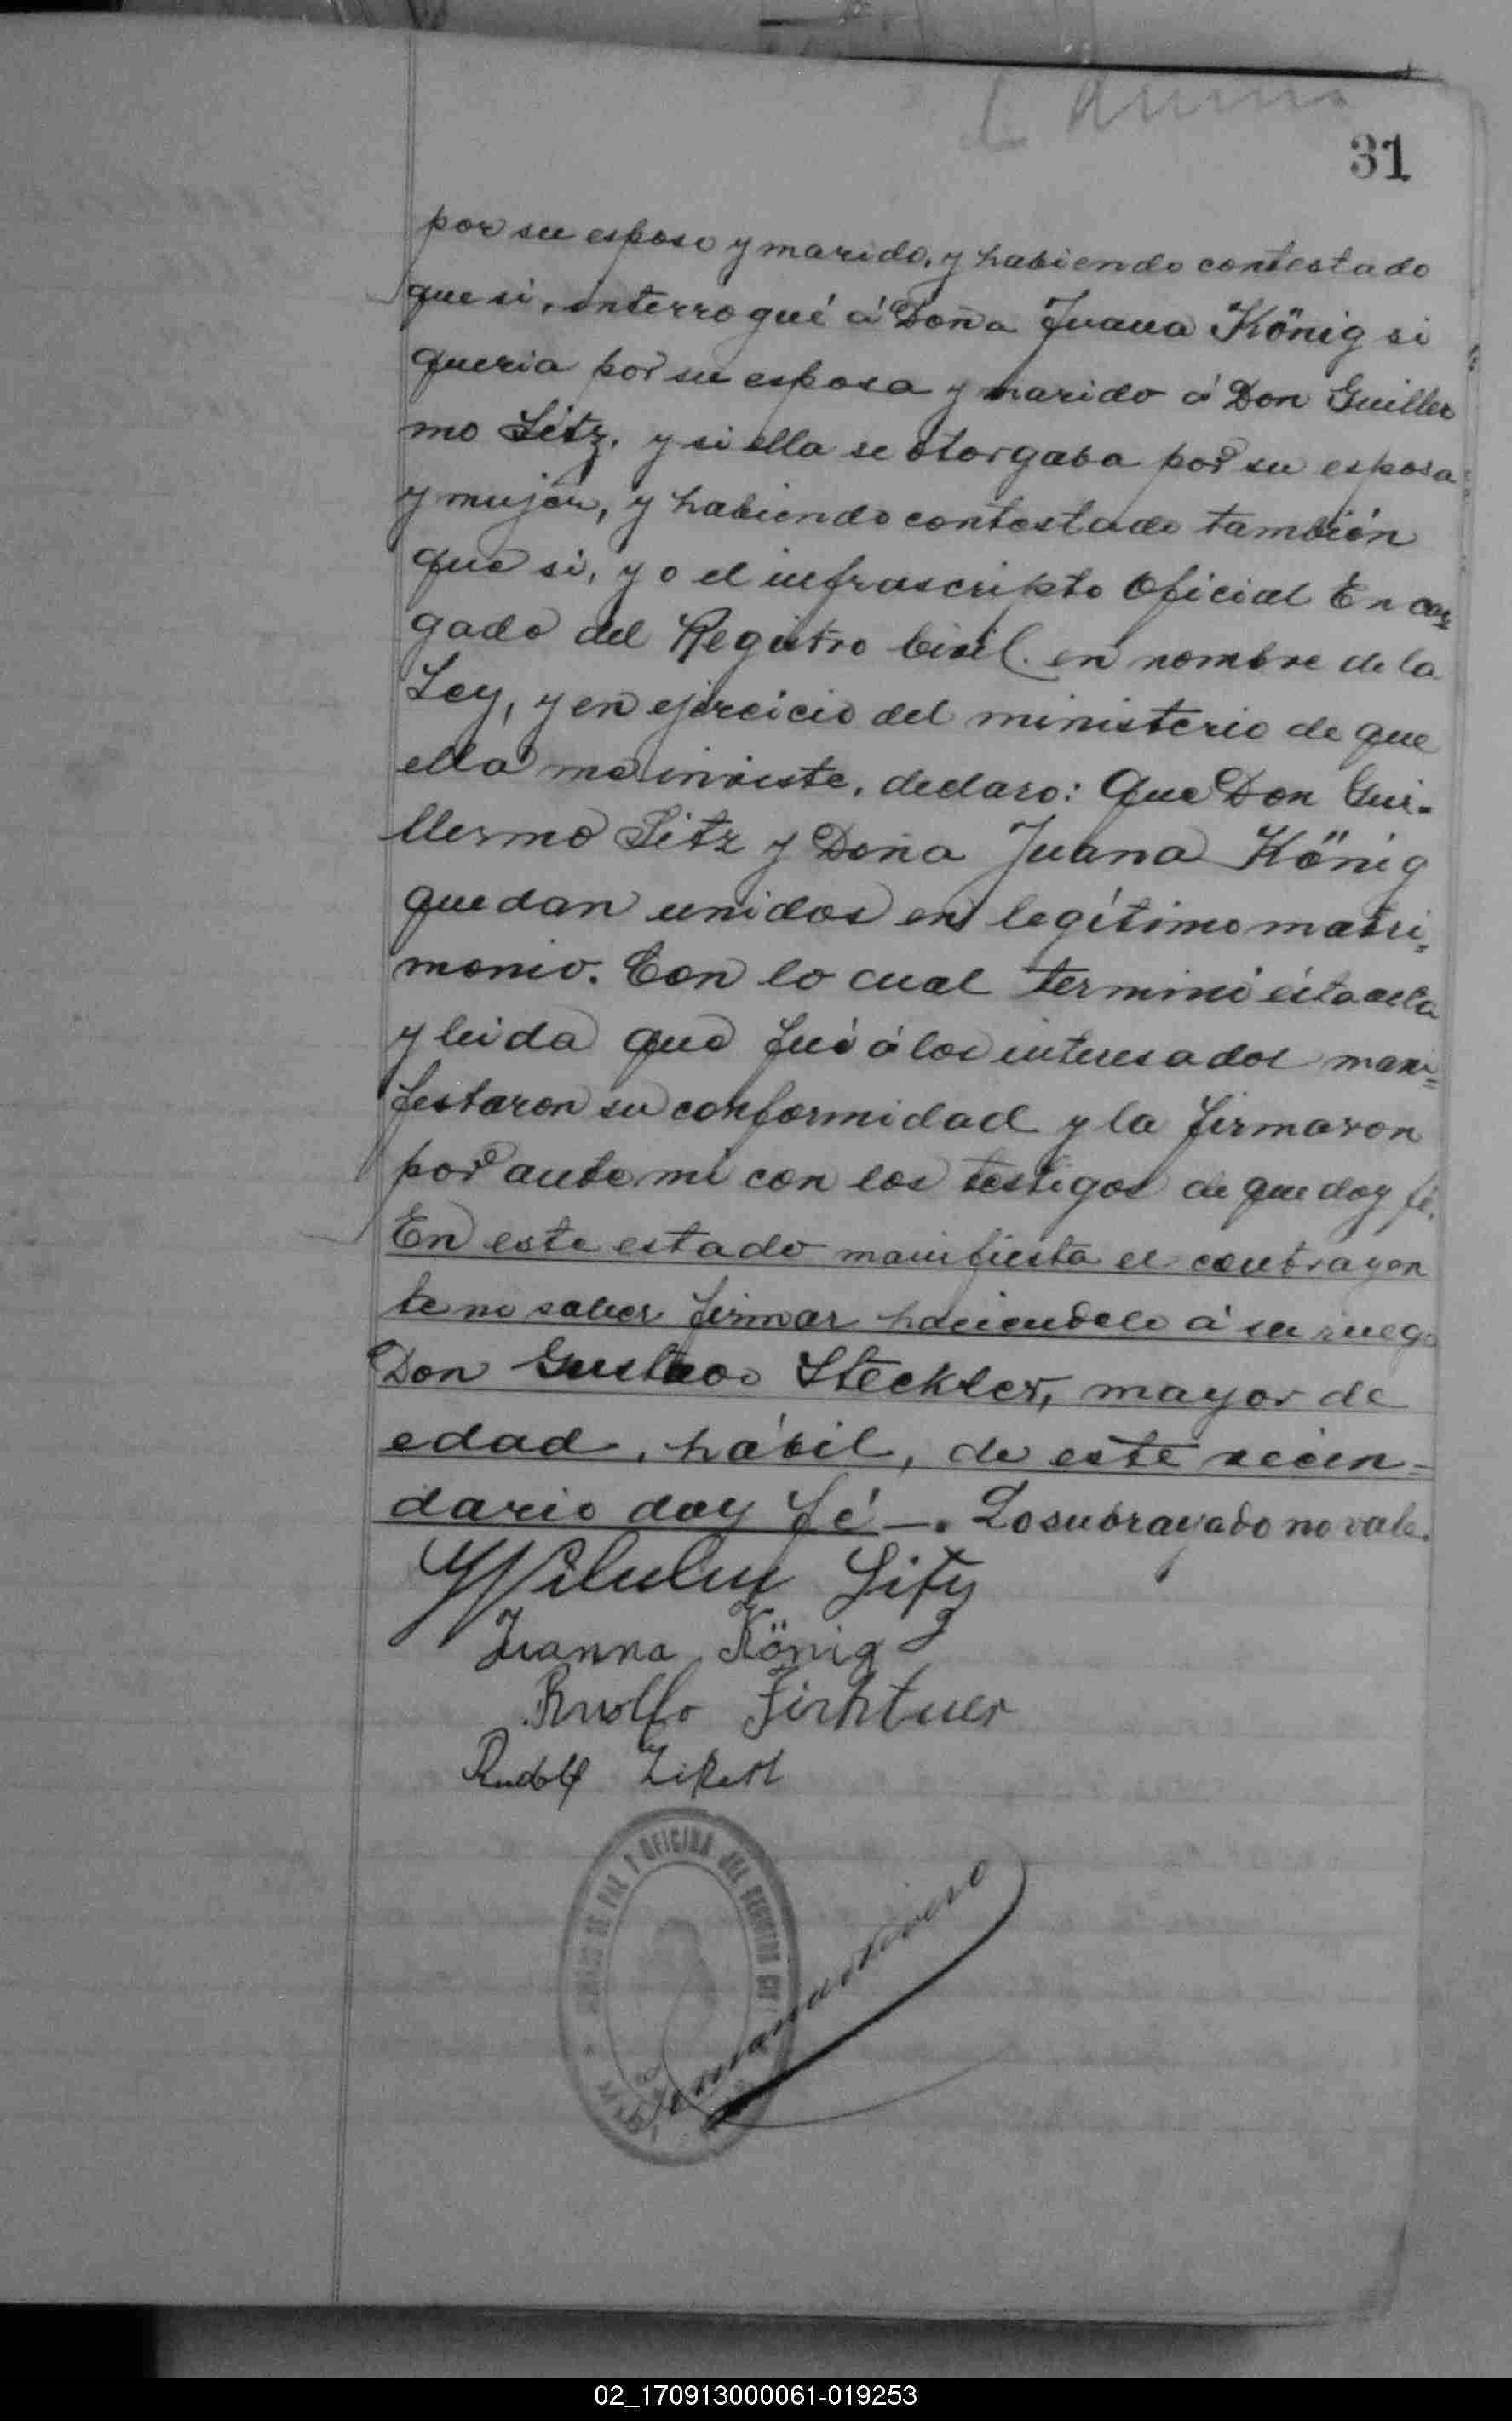 31
por su esposo y marido, y habiendo contestado
que si, interrogué á Doña Juana König si
queria por su esposo y marido á Don Guiller
mo Sitz, y si ella se otorgaba por su esposa
y mujer, y habiendo contestado también
que si, yo el infrascripto Oficial Encar=
gado del Registro Civil en nombre de la
Ley, y en ejercicio del ministerio de que
ella me inviste, declaro: Que Don Gui-
llermo Sitz y Doña Juana König
quedan unidos en legítimo matri=
monio. Con lo cual terminé ésta acta
y leida que fué á los interesados mani=
festaron su conformidad y la firmaron
por ante mi con los testigos de que doy fé.
En este estado manifiesta el contrayen
te no saber firmar haciendolo á su ruego
Don Gustavo Steckler, mayor de
edad, hábil, de este vecin-
dario doy fé —. Lo subrayado no vale.
Wilhelm Sitz
Juanna König
Rudolf
JUZGADO DE PAZ Y OFICINA DEL REGISTRO CIVIL
02_170913000061-019253